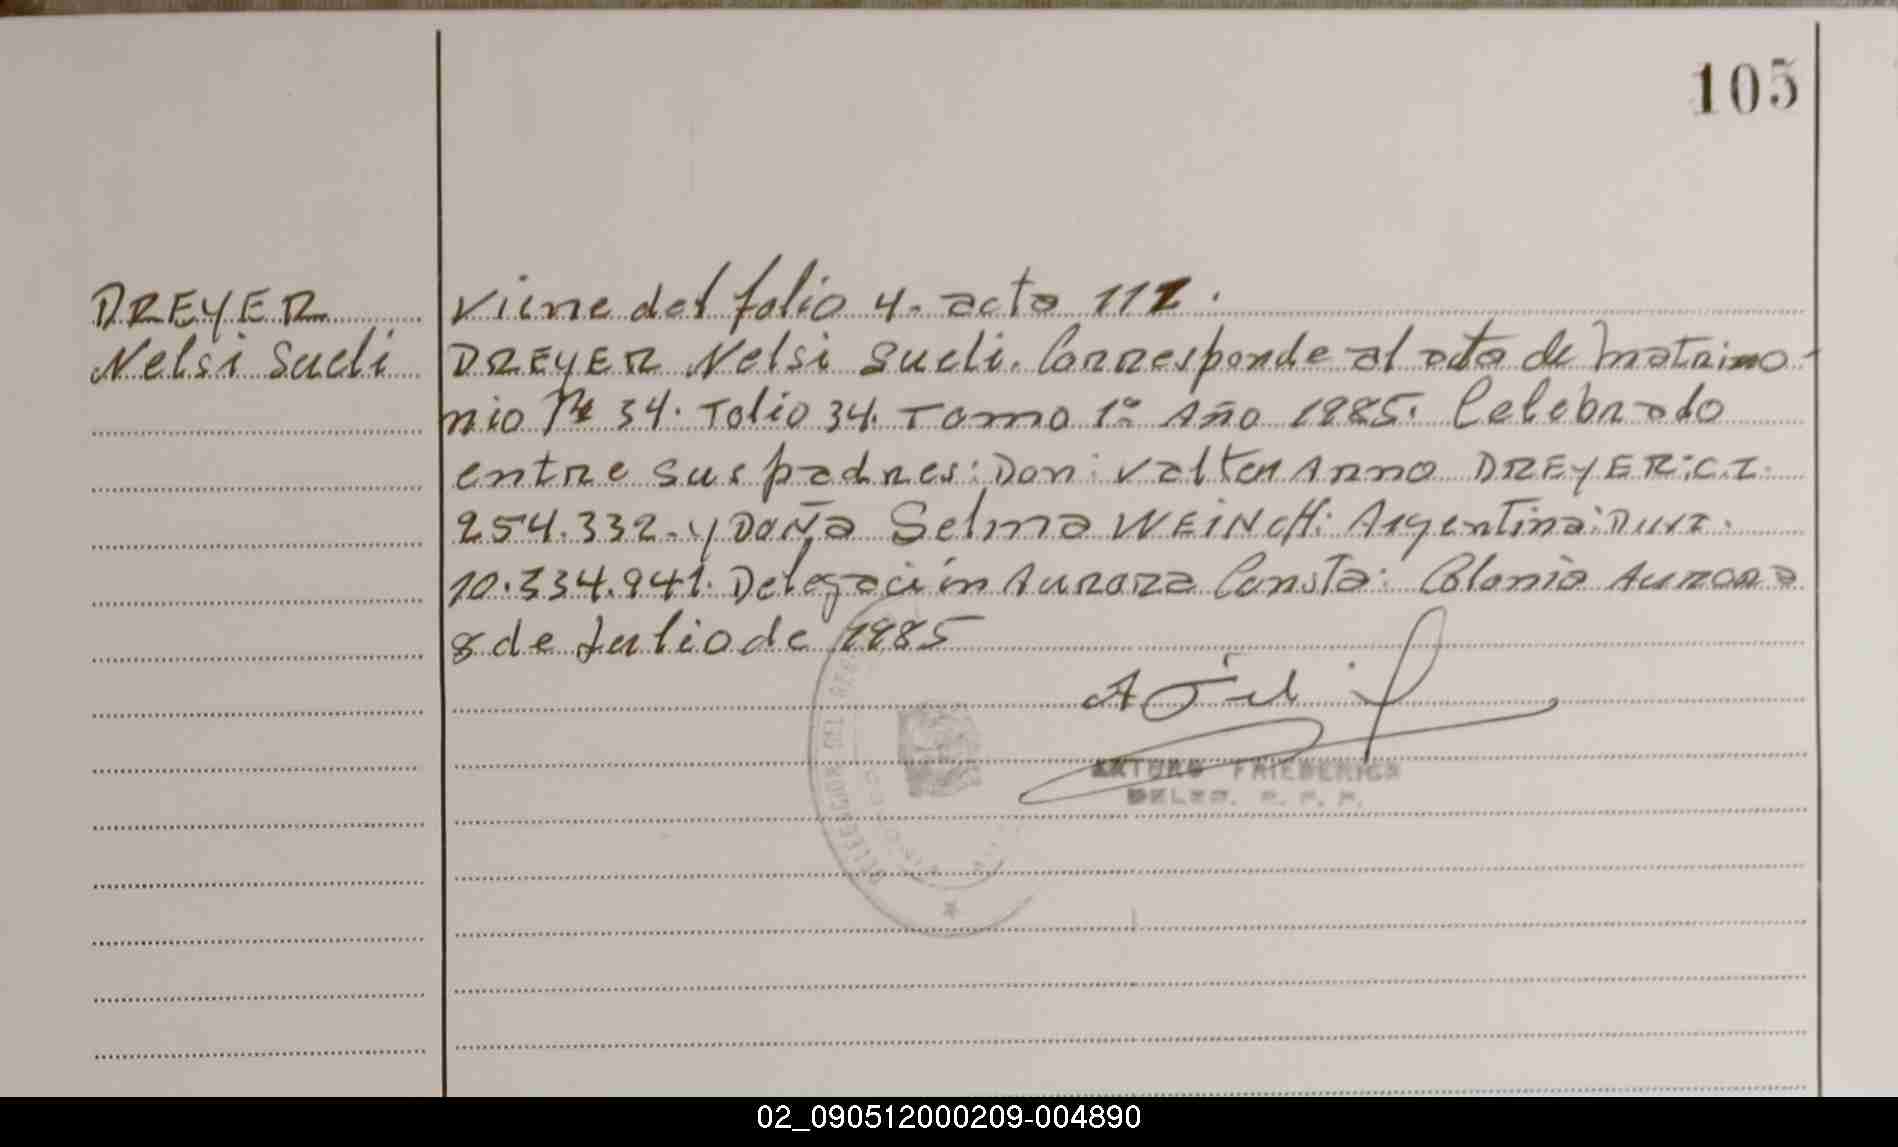 105
DREYER
Nelsi Sueli
Viene del folio 4. acta 112.
DREYER Nelsi Sueli. Corresponde al acta de Matrimo-
nio Nº 34. Tolio 34. Tomo 1º Año 1985. Celebrado
entre sus padres: Don: Valter Arno DREYER: C.I.
254.332. y DOÑa Selma WEiNCH: Argentina:
10.334.941. Delegación Aurora Consta: Colonia Aurora
8 de Julio de 1985
ARTURO FRIEDERICH
DELEG. R. P. P.
DELEGACION DEL
02_090512000209-004890